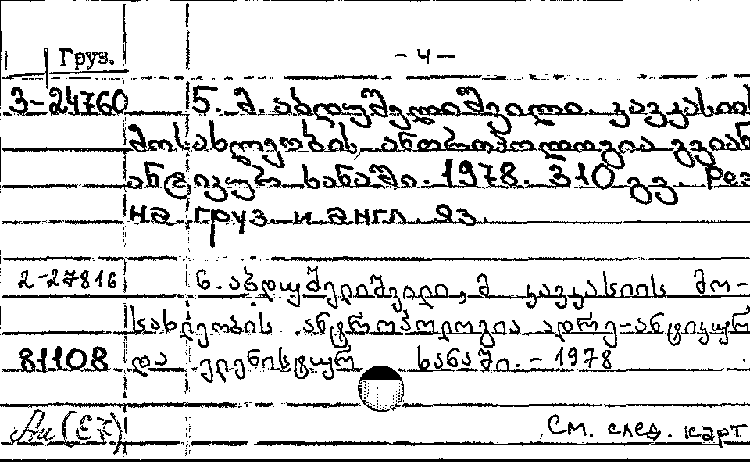 Груз.
- 4 -
3-24760 5. მ. აბდუშელიშვილი. კავკასიის
მოსახლეობის ანთროპოლოგია გვიან
ანტიკურ ხანაში. 1978. 310 გვ. Рез
на груз. и англ. яз.
2-27816 6. აბდუშელიშვილი, მ კავკასიის მო-
სახლეობის ანტროპოლოგია ადრე-ანტიკურ
81108 და ელენისტურ ხანაში. - 1978
См. след. карт